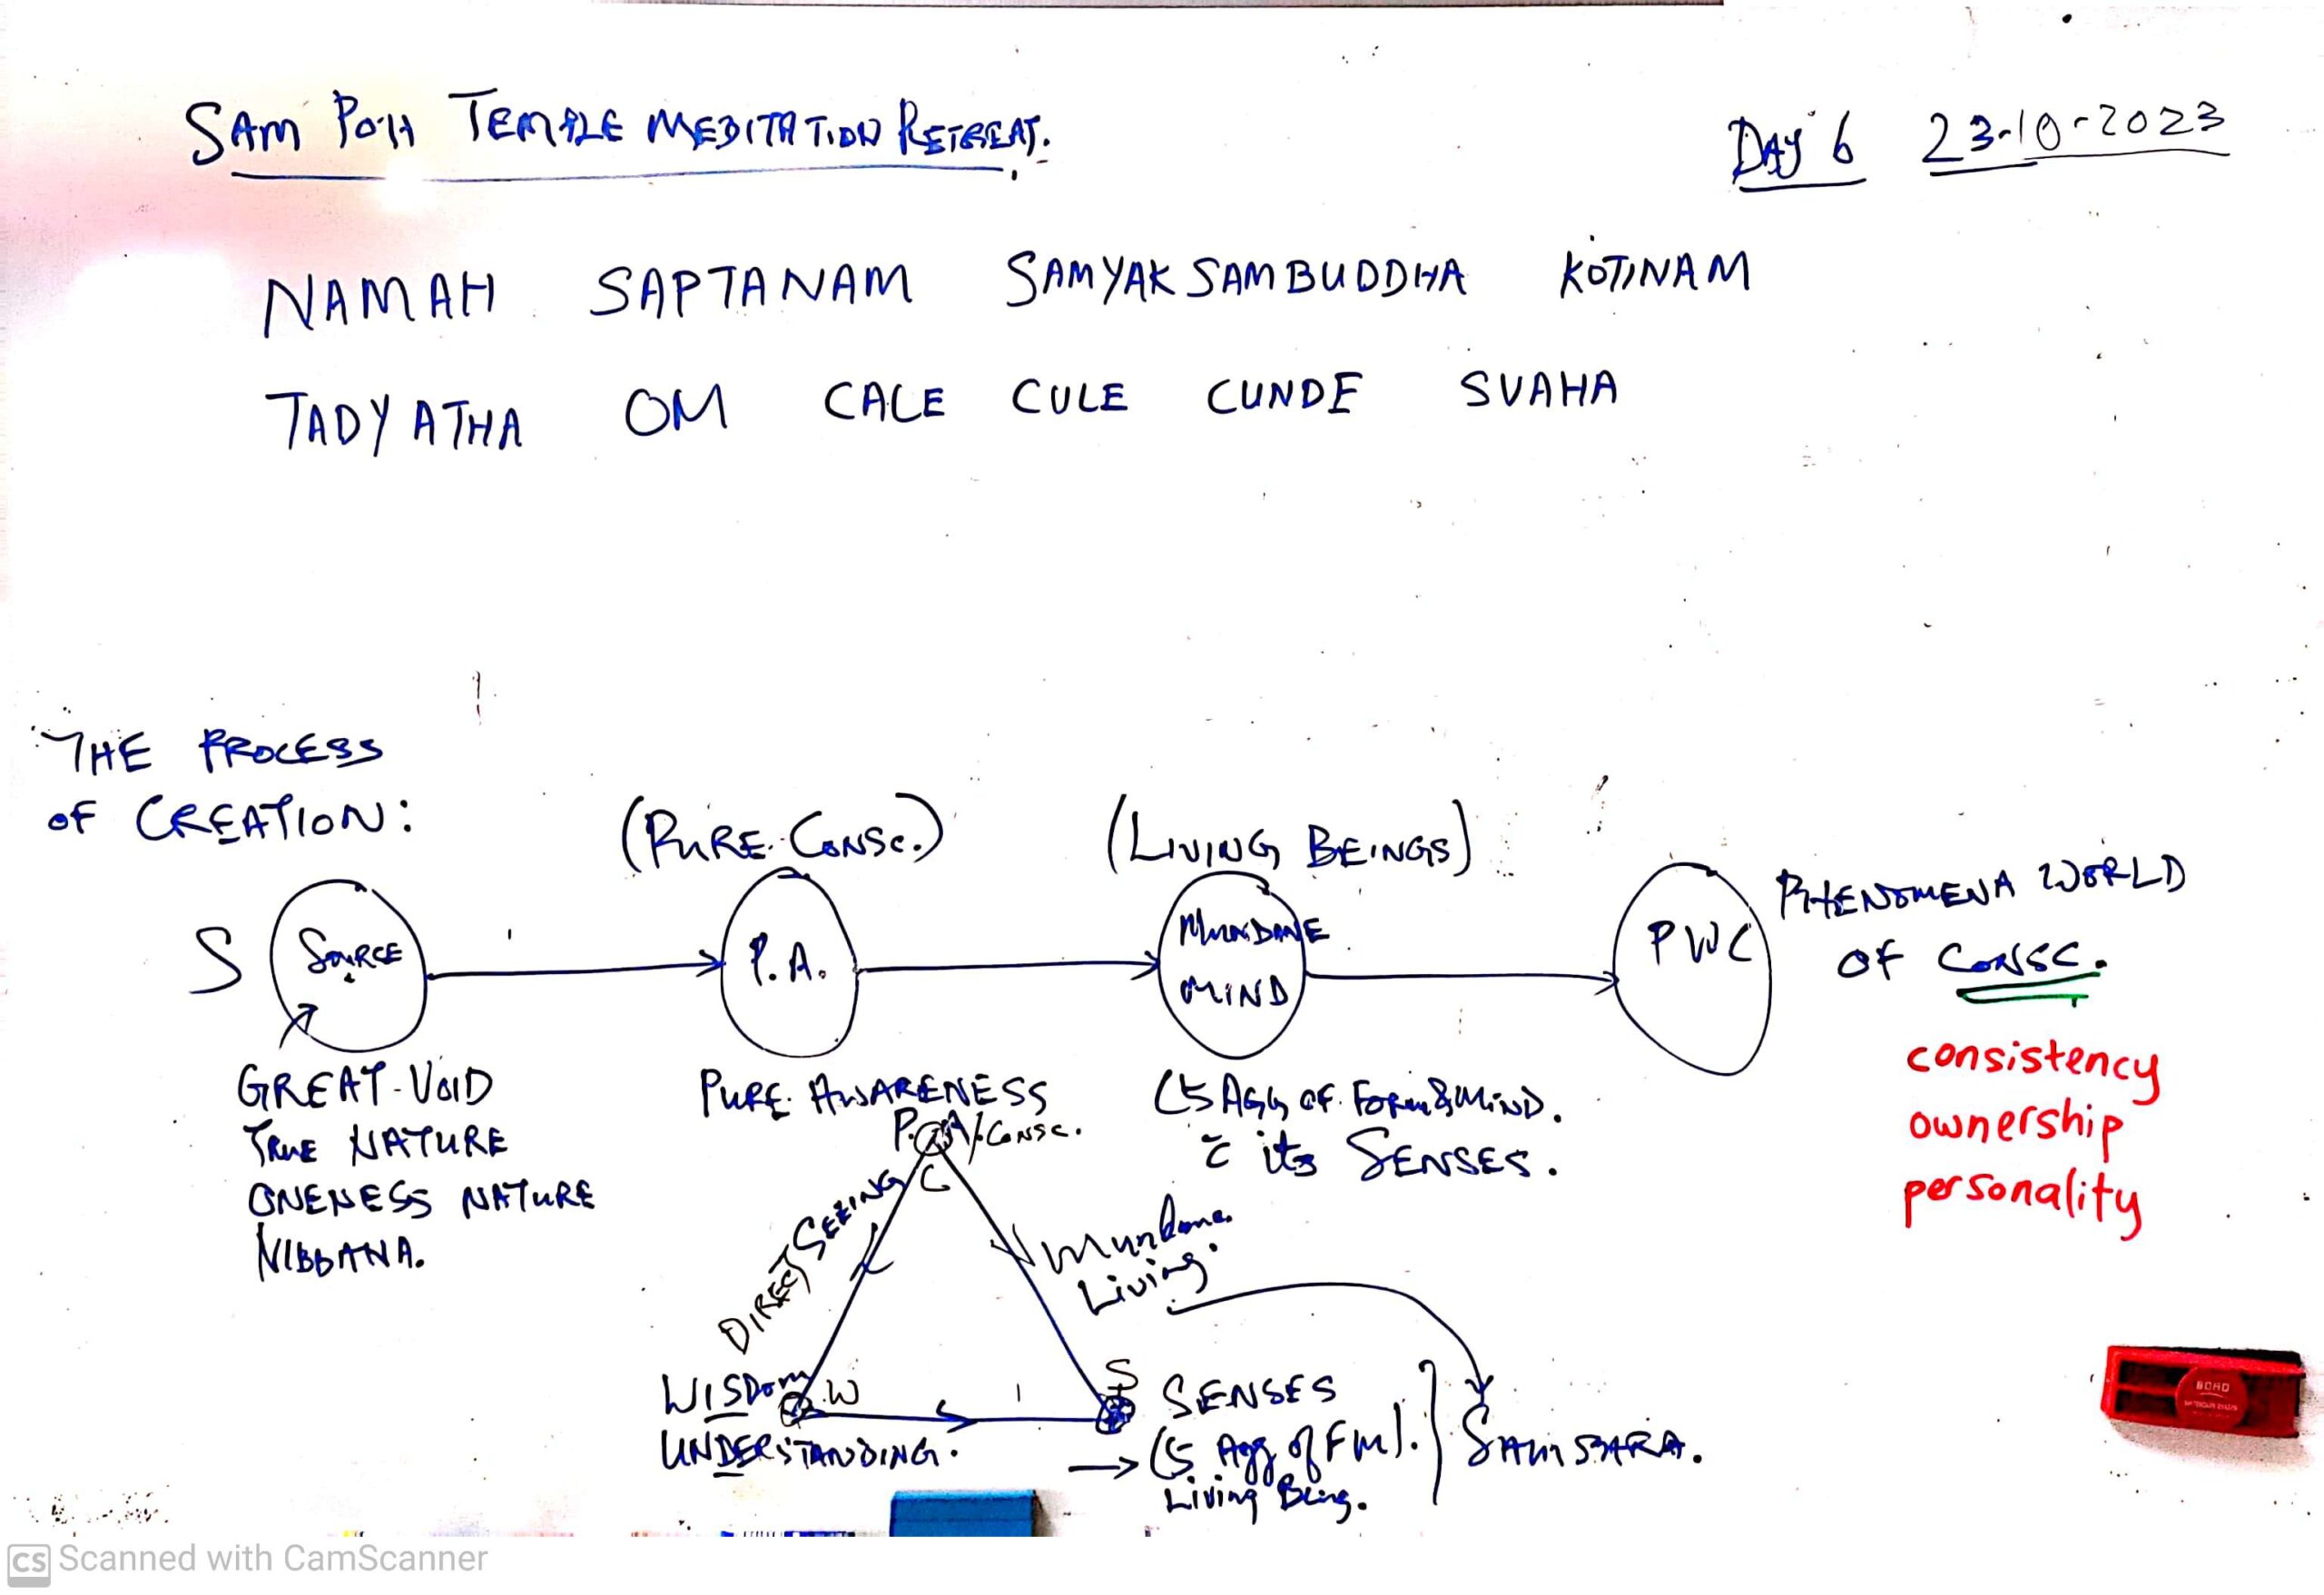 SAM POH TEMPLE MEDITATION RETREAT.
DAY 6 23-10-2023
NAMAH SAPTANAM SAMYAK SAMBUDDHA KOTINAM
TADYATHA OM CALE CULE CUNDE SVAHA
THE PROCESS
OF CREATION:
(PURE. CONSC.)
(LIVING BEINGS)
S
SOURCE
P.A.
MUNDANE
MIND
PWC
PHENOMENA WORLD
OF CONSC.
consistency
ownership
personality
GREAT-VOID
TRUE NATURE
ONENESS NATURE
NIBBANA.
PURE. AWARENESS
P.A/.CONSC.
C
(5 AGG OF. FORM & MIND.
c̄ its SENSES.
DIRECT SEEING
Mundane
Living.
WISDOM
W
UNDERSTANDING.
S
SENSES
→ (5 Agg of FM).
Living Being.
SAMSARA.
BOHO
CS Scanned with CamScanner